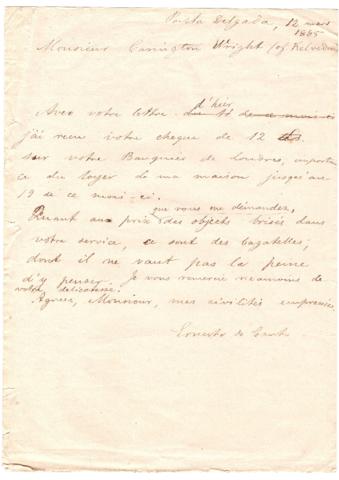 Ponta Delgada, 12 mars
1885
Monsieur Carrington Wright (of Belvedere
d'hier
Avec votre lettre du 11 de ce mois ci
j'ai recu votre cheque de 12
sur votre Banquier de Londres, importan
ce du loyer de ma maison jusqu'au
19 de ce mois-ci.
que vous me demandez,
Quant au prix des objects brisés dans
votre service, ce sont des bagatelles,
dont il ne vaut pas la peine
d'y penser. Je vous remercie néanmoins de
votre délicatesse.
Agréez, Monsieur, mes civilités empressées
Ernesto do Canto